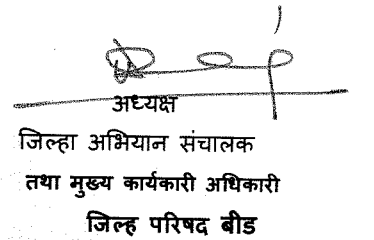 अध्यक्ष
जिल्हा अभियान संचालक
तथा मुख्य कार्यकारी अधिकारी
जिल्ह परिषद बीड